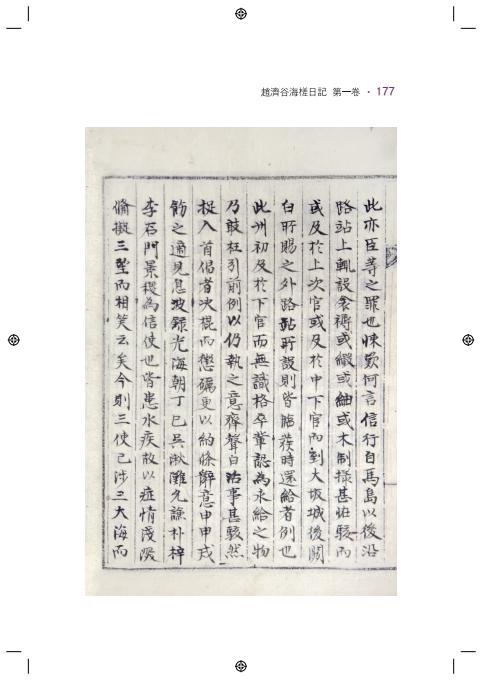 趙濟谷海槎日記 第一卷 · 177
此亦臣等之罪也悚歎何言信行自馬島以後沿
路站上輒設衾褥或緞或紬或木制樣甚壯駭而
或及於上次官或及於中下官而到大坂城後關
白所賜之外路站所設則皆臨發時還給者例也
此州初及於下官而無識格卒輩認為永給之物
乃敢枉引前例以仍執之意齊聲白活事甚駭然
捉入首倡者決棍而懲礪更以約條辭意申申戒
飭之適見息波錄光海朝丁巳吳楸灘允謙朴梓
李石門景稷為信使也皆患水疾故以症情淺深
備擬三聖而相笑云矣今則三使已涉三大海而